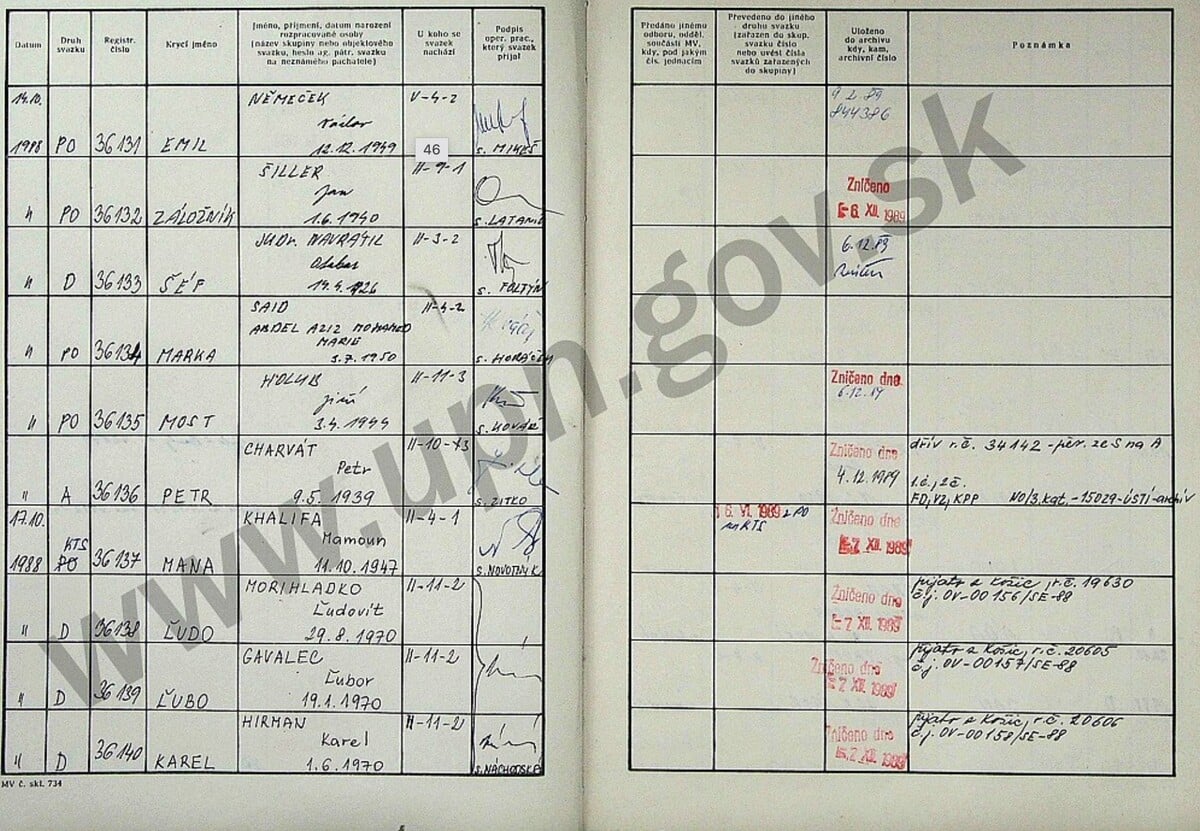 Datum
Druh
svazku
Registr.
číslo
Krycí jméno
Jméno, příjmení, datum narození
rozpracované osoby
(název skupiny nebo objektového
svazku, heslo ag. pátr. svazku
na neznámého pachatele)
U koho se
svazek
nachází
Podpis
oper. prac.,
který svazek
přijal
Předáno jinému
odboru, odděl.
součásti MV,
kdy, pod jakým
čís. jednacím
Převedeno do jiného
druhu svazku
(zařazen do skup.
svazku číslo
nebo uvést čísla
svazků zařazených
do skupiny)
Uloženo
do archivu
kdy, kam,
archivní číslo
Poznámka
14.10. NĚMEČEK V-4-2 9.2.89
Václav 844386
1988 PO 36131 EMIL 12.12.1949 s. MIKEŠ
46
ŠILLER II-9-1 Zničeno
Jan -6. XII. 1989
" PO 36132 ZÁLOŽNÍK 1.6.1940
JUDr. NAVRÁTIL II-3-2 6.12.89
Otakar
" D 36133 ŠÉF s. FOLTÝN
SAID II-4-2
ABDEL AZIZ MOHAMED
MARIE
" PO 36134 MARKA 3.7.1950 s. HORÁČEK
HOLUB II-11-3 Zničeno dne
Jiří 6.12.89
" PO 36135 MOST 3.4.1944 s. KOVÁŘ
CHARVÁT II-10-13 Zničeno dne dřív r.č. 34142 - per. ze S na A
Petr 4.12.1989 1.č., 2.č.
" A 36136 PETR 9.5.1939 s. ZITKO FD, VZ, KPP NO/3.kat. -15029-ÚSTÍ-archív
17.10. KHALIFA II-4-1 6. VI. 1989 z PO Zničeno dne
KTS Mamoun na KTS -7. XII. 1989
1988 PO 36137 MANA 11.10.1947 s. NOVOTNÝ K
MORIHLADKO II-11-2 Zničeno dne přijato z Košic, r.č. 19630
Ľudovít -7. XII. 1989 č.j. OV-00156/SE-88
" D 36138 ĽUDO 29.8.1970
GAVALEC II-11-2 Zničeno dne přijato z Košic, r.č. 20605
Ľubor -7. XII. 1989 č.j. OV-00157/SE-88
" D 36139 ĽUBO 19.1.1970
HIRMAN II-11-2 Zničeno dne přijato z Košic, r.č. 20606
Karel -7. XII. 1989 č.j. OV-00158/SE-88
" D 36140 KAREL 1.6.1970 s. NÁCHODSKÝ
MV č. skl. 734
www.upn.gov.sk